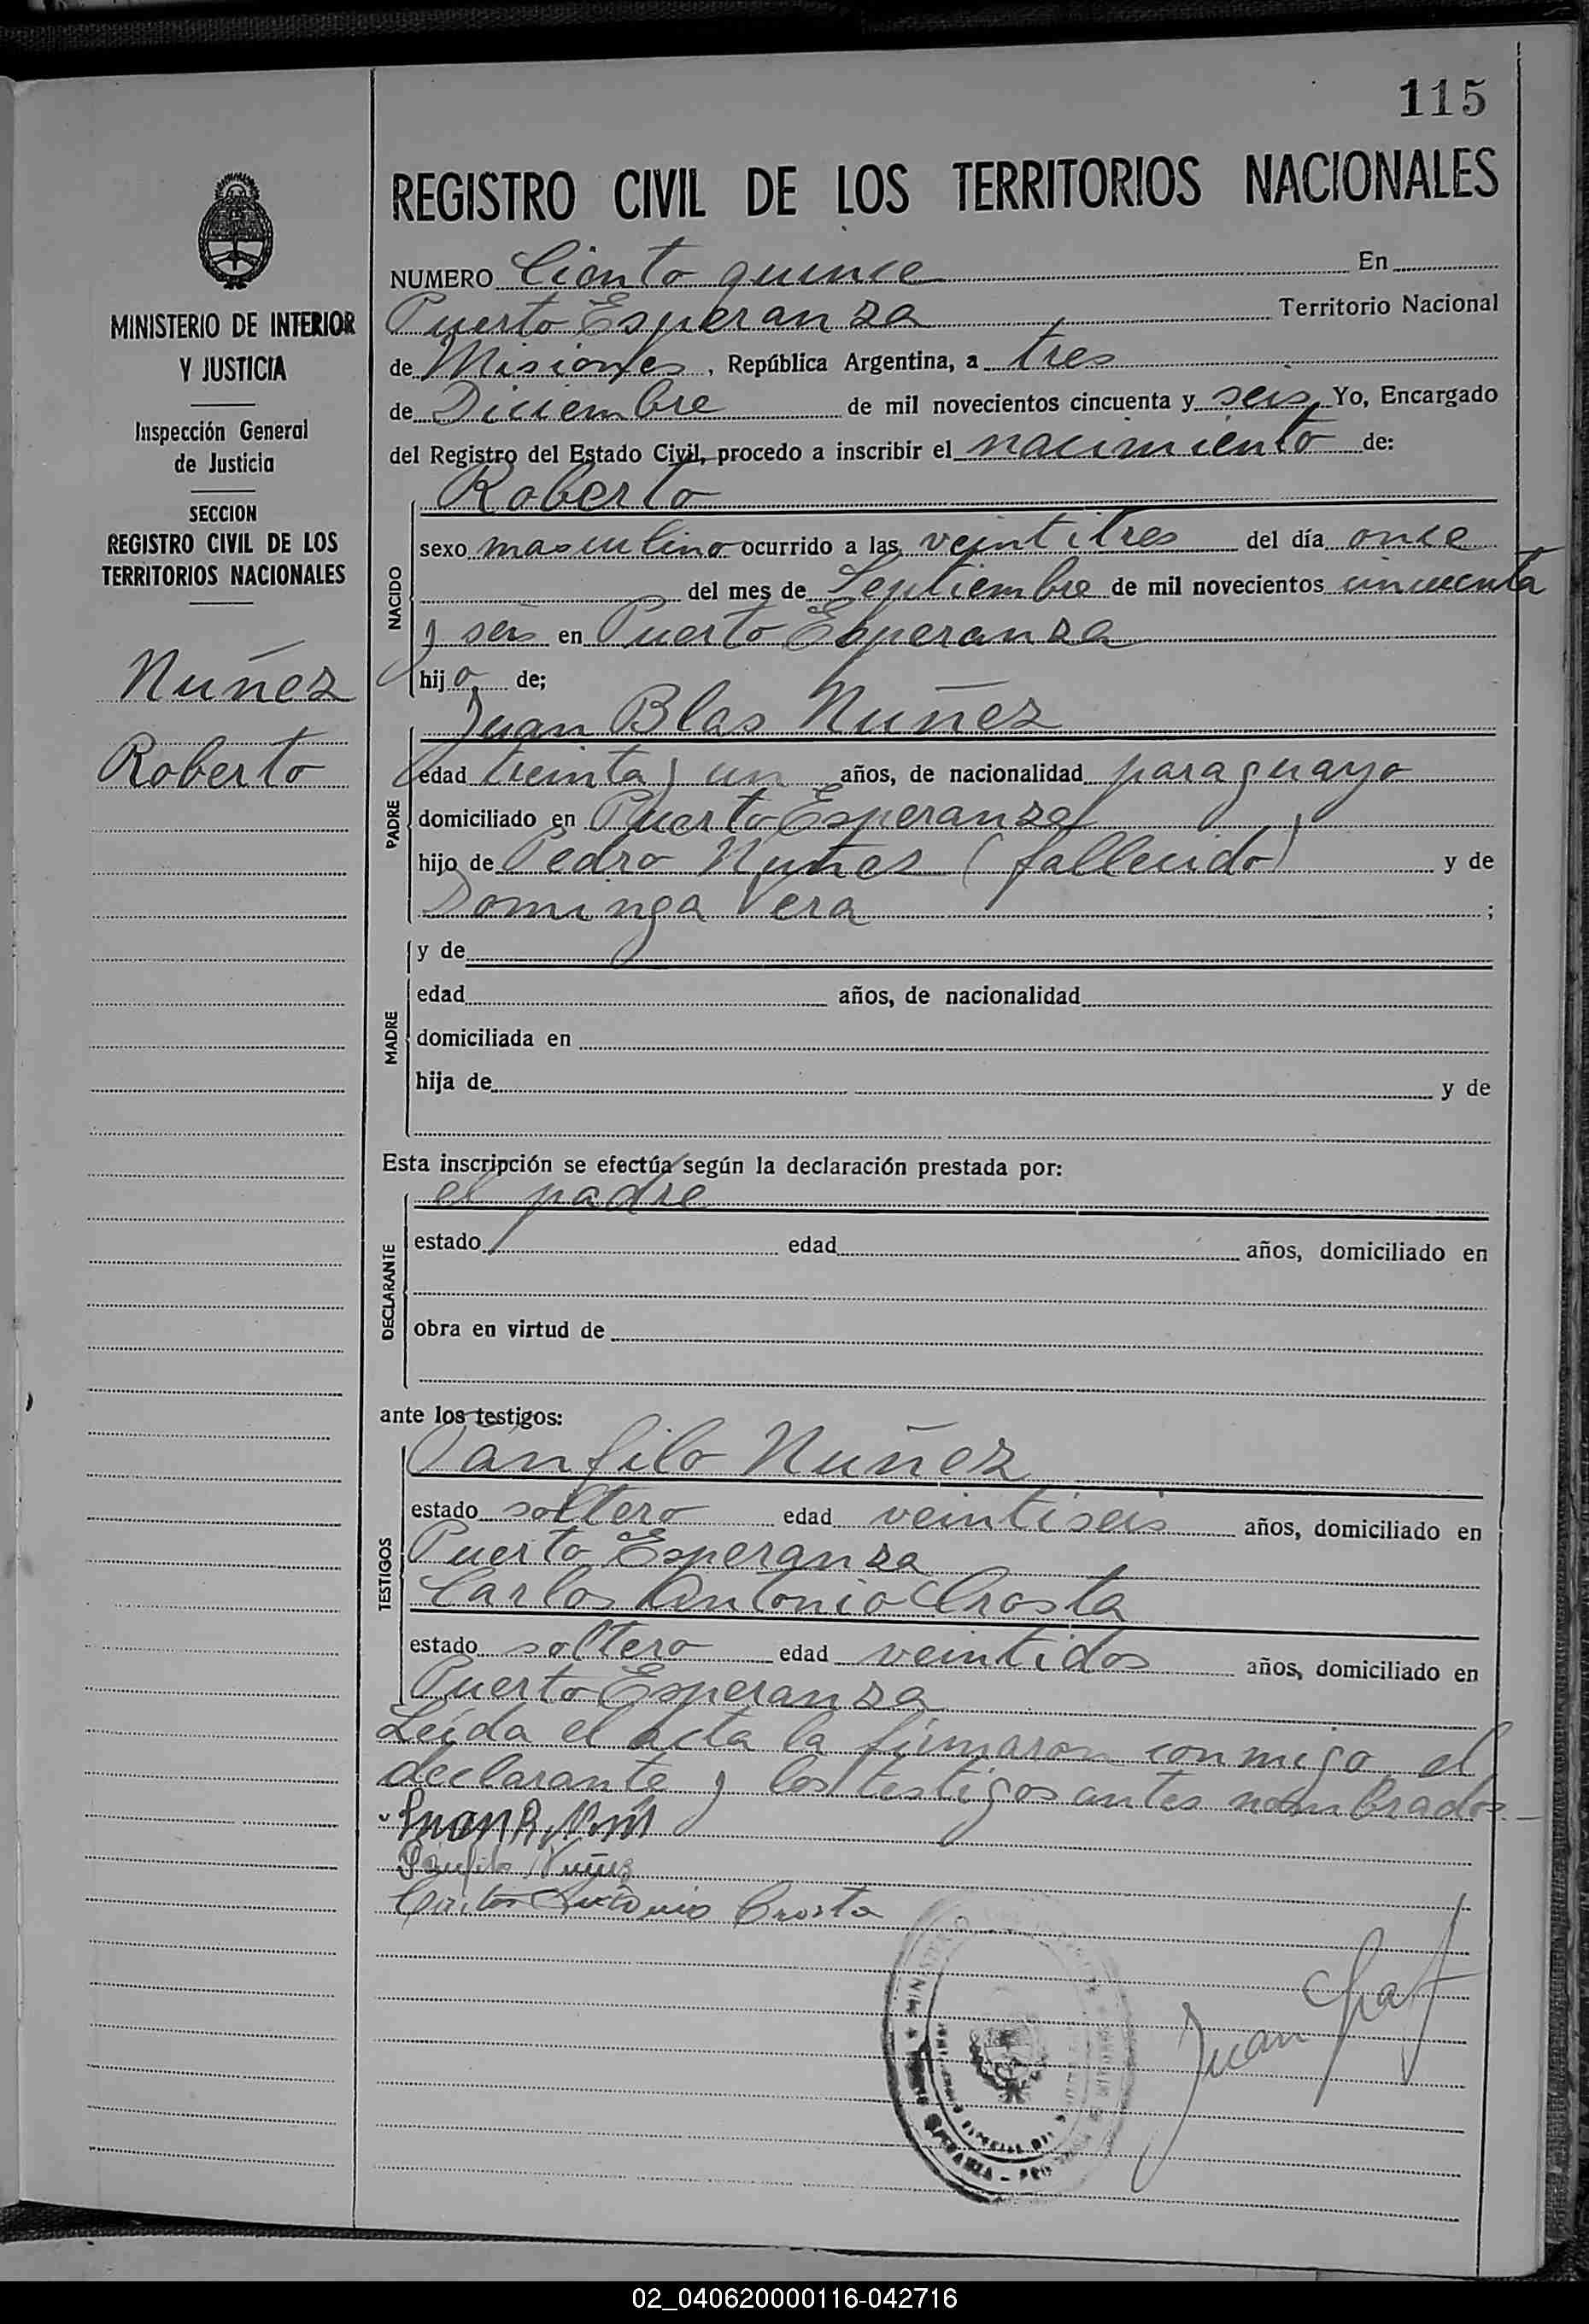 115
REGISTRO CIVIL DE LOS TERRITORIOS NACIONALES
MINISTERIO DE INTERIOR
Y JUSTICIA
Inspección General
de Justicia
SECCION
REGISTRO CIVIL DE LOS
TERRITORIOS NACIONALES
Nuñez
Roberto
NUMERO Ciento quince En
Puerto Esperanza Territorio Nacional
de Misiones, República Argentina, a tres
de Diciembre de mil novecientos cincuenta y seis Yo, Encargado
del Registro del Estado Civil, procedo a inscribir el nacimiento de:
Roberto
NACIDO
sexo masculino ocurrido a las veintitres del día once
del mes de Septiembre de mil novecientos cincuenta
y seis en Puerto Esperanza
hijo de;
Juan Blas Nuñez
PADRE
edad treinta y un años, de nacionalidad paraguayo
domiciliado en Puerto Esperanza
hijo de Pedro Nuñez (fallecido) y de
Dominga Vera ;
y de
MADRE
edad años, de nacionalidad
domiciliada en
hija de y de
Esta inscripción se efectúa según la declaración prestada por:
el padre
DECLARANTE
estado edad años, domiciliado en
obra en virtud de
ante los testigos:
Panfilo Nuñez
TESTIGOS
estado soltero edad veintiseis años, domiciliado en
Puerto Esperanza
Carlos Antonio Crosta
estado soltero edad veintidos años, domiciliado en
Puerto Esperanza
Leída el acta la firmaron conmigo el
declarante y los testigos antes nombrados.-
Juan B.
Panfilo Nuñez
Carlos Antonio Crosta
Juan
02_040620000116-042716